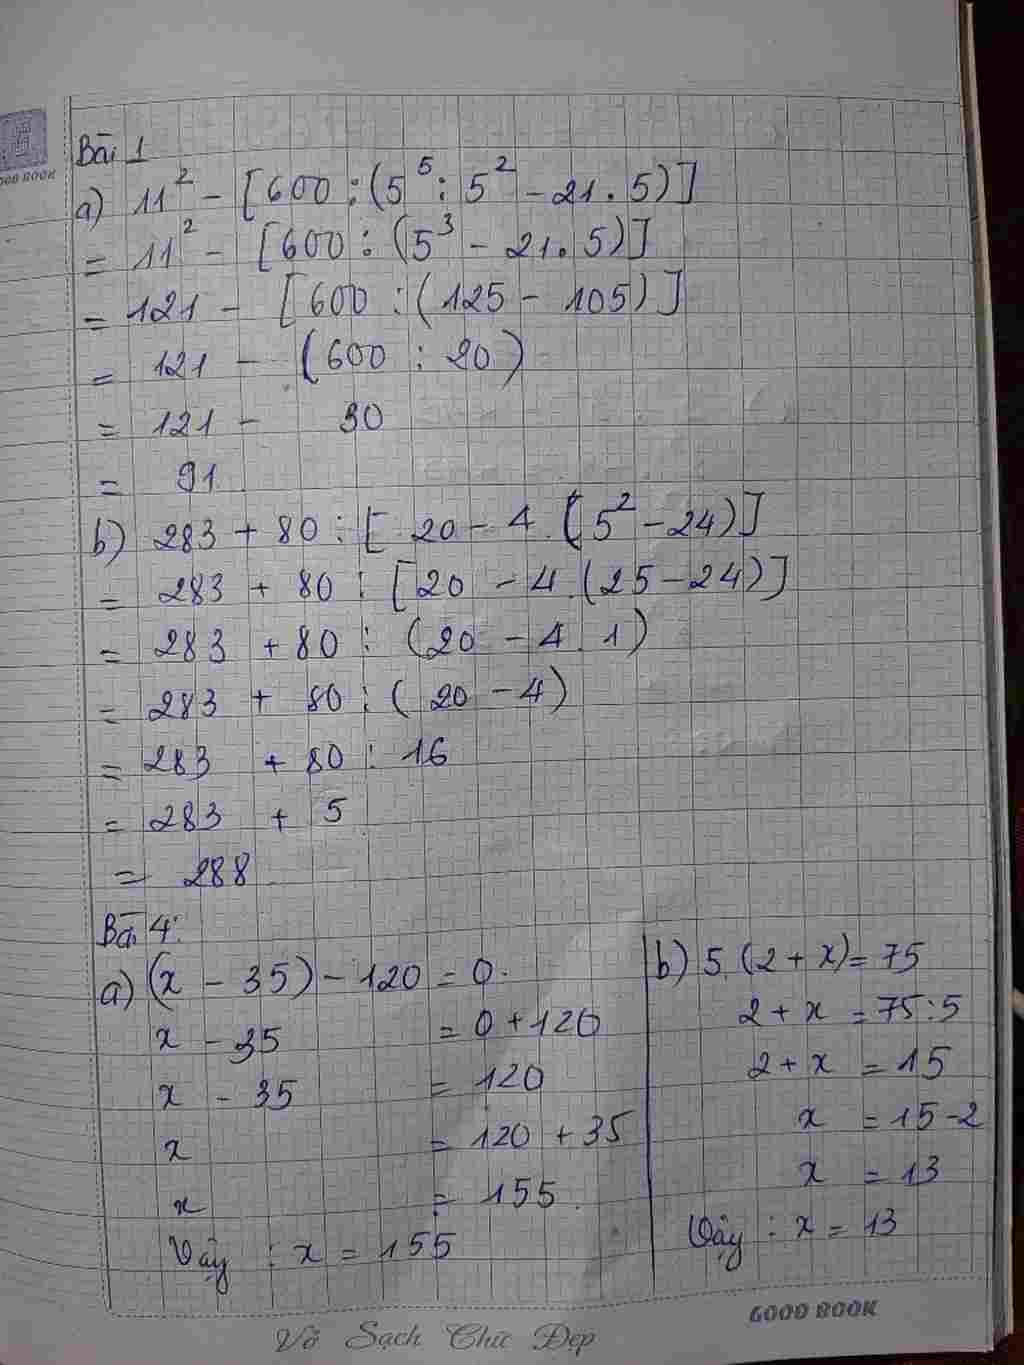 Bài 1
a) 11² - [600 : (5⁵ : 5² - 21 . 5)]
= 11² - [600 : (5³ - 21 . 5)]
= 121 - [600 : (125 - 105)]
= 121 - (600 : 20)
= 121 - 30
= 91
b) 283 + 80 : [20 - 4 . (5² - 24)]
= 283 + 80 : [20 - 4 . (25 - 24)]
= 283 + 80 : (20 - 4 . 1)
= 283 + 80 : (20 - 4)
= 283 + 80 : 16
= 283 + 5
= 288
Bài 4:
a) (x - 35) - 120 = 0.
x - 35 = 0 + 120
x - 35 = 120
x = 120 + 35
x = 155
Vậy : x = 155
b) 5 . (2 + x) = 75
2 + x = 75 : 5
2 + x = 15
x = 15 - 2
x = 13
Vậy : x = 13
GOOD BOOK
Vở Sạch Chữ Đẹp